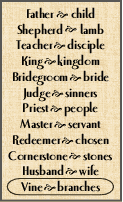 Father & child
Shepherd & lamb
Teacher & disciple
King & kingdom
Bridegroom & bride
Judge & sinners
Priest & people
Master & servant
Redeemer & chosen
Cornerstone & stones
Husband & wife
Vine & branches